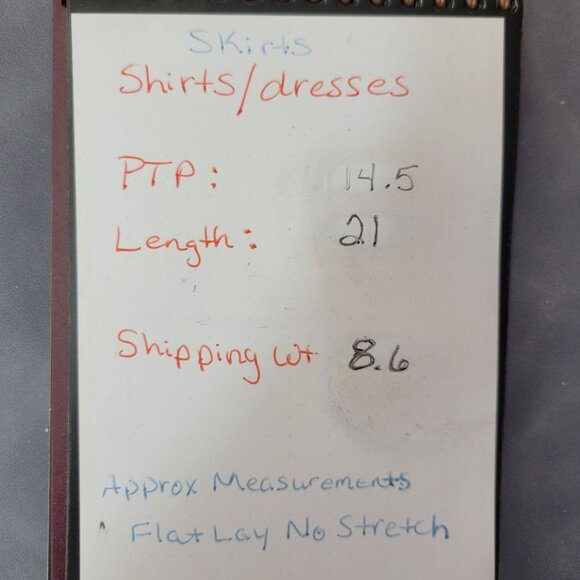 Skirts
Shirts/dresses
PTP: 14.5
Length: 21
Shipping Wt 8.6
Approx Measurements
Flat Lay No Stretch